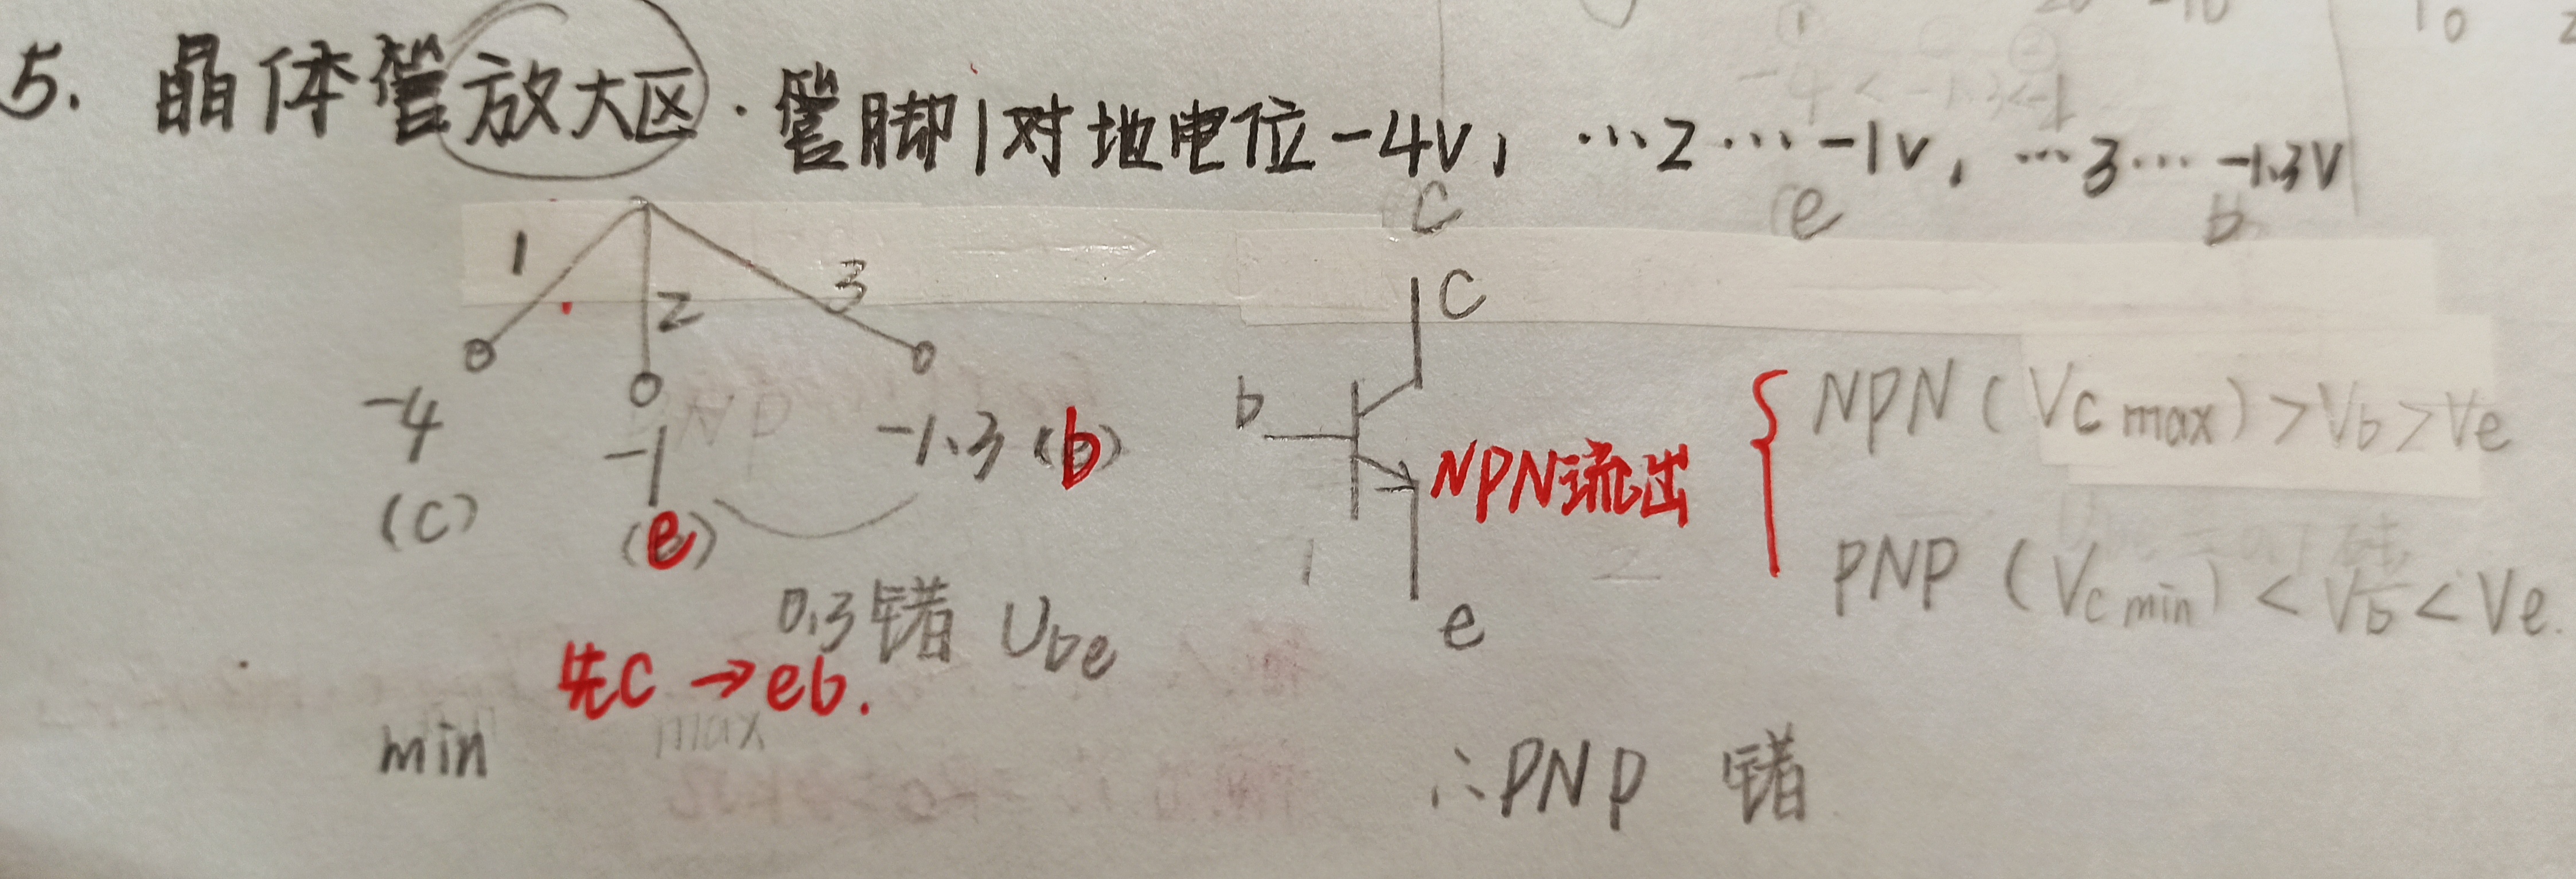 5. 晶体管放大区. 管脚1对地电位-4V, …2…-1V, …3…-1.3V
c e b
1 2 3
-4 -1 -1.3 (b)
(c) (e)
0.3 锗 Ube
先c → eb.
min max
c
b
e
NPN流出
1 2
NPN (Vc max) > Vb > Ve
PNP (Vc min) < Vb < Ve.
∴ PNP 锗